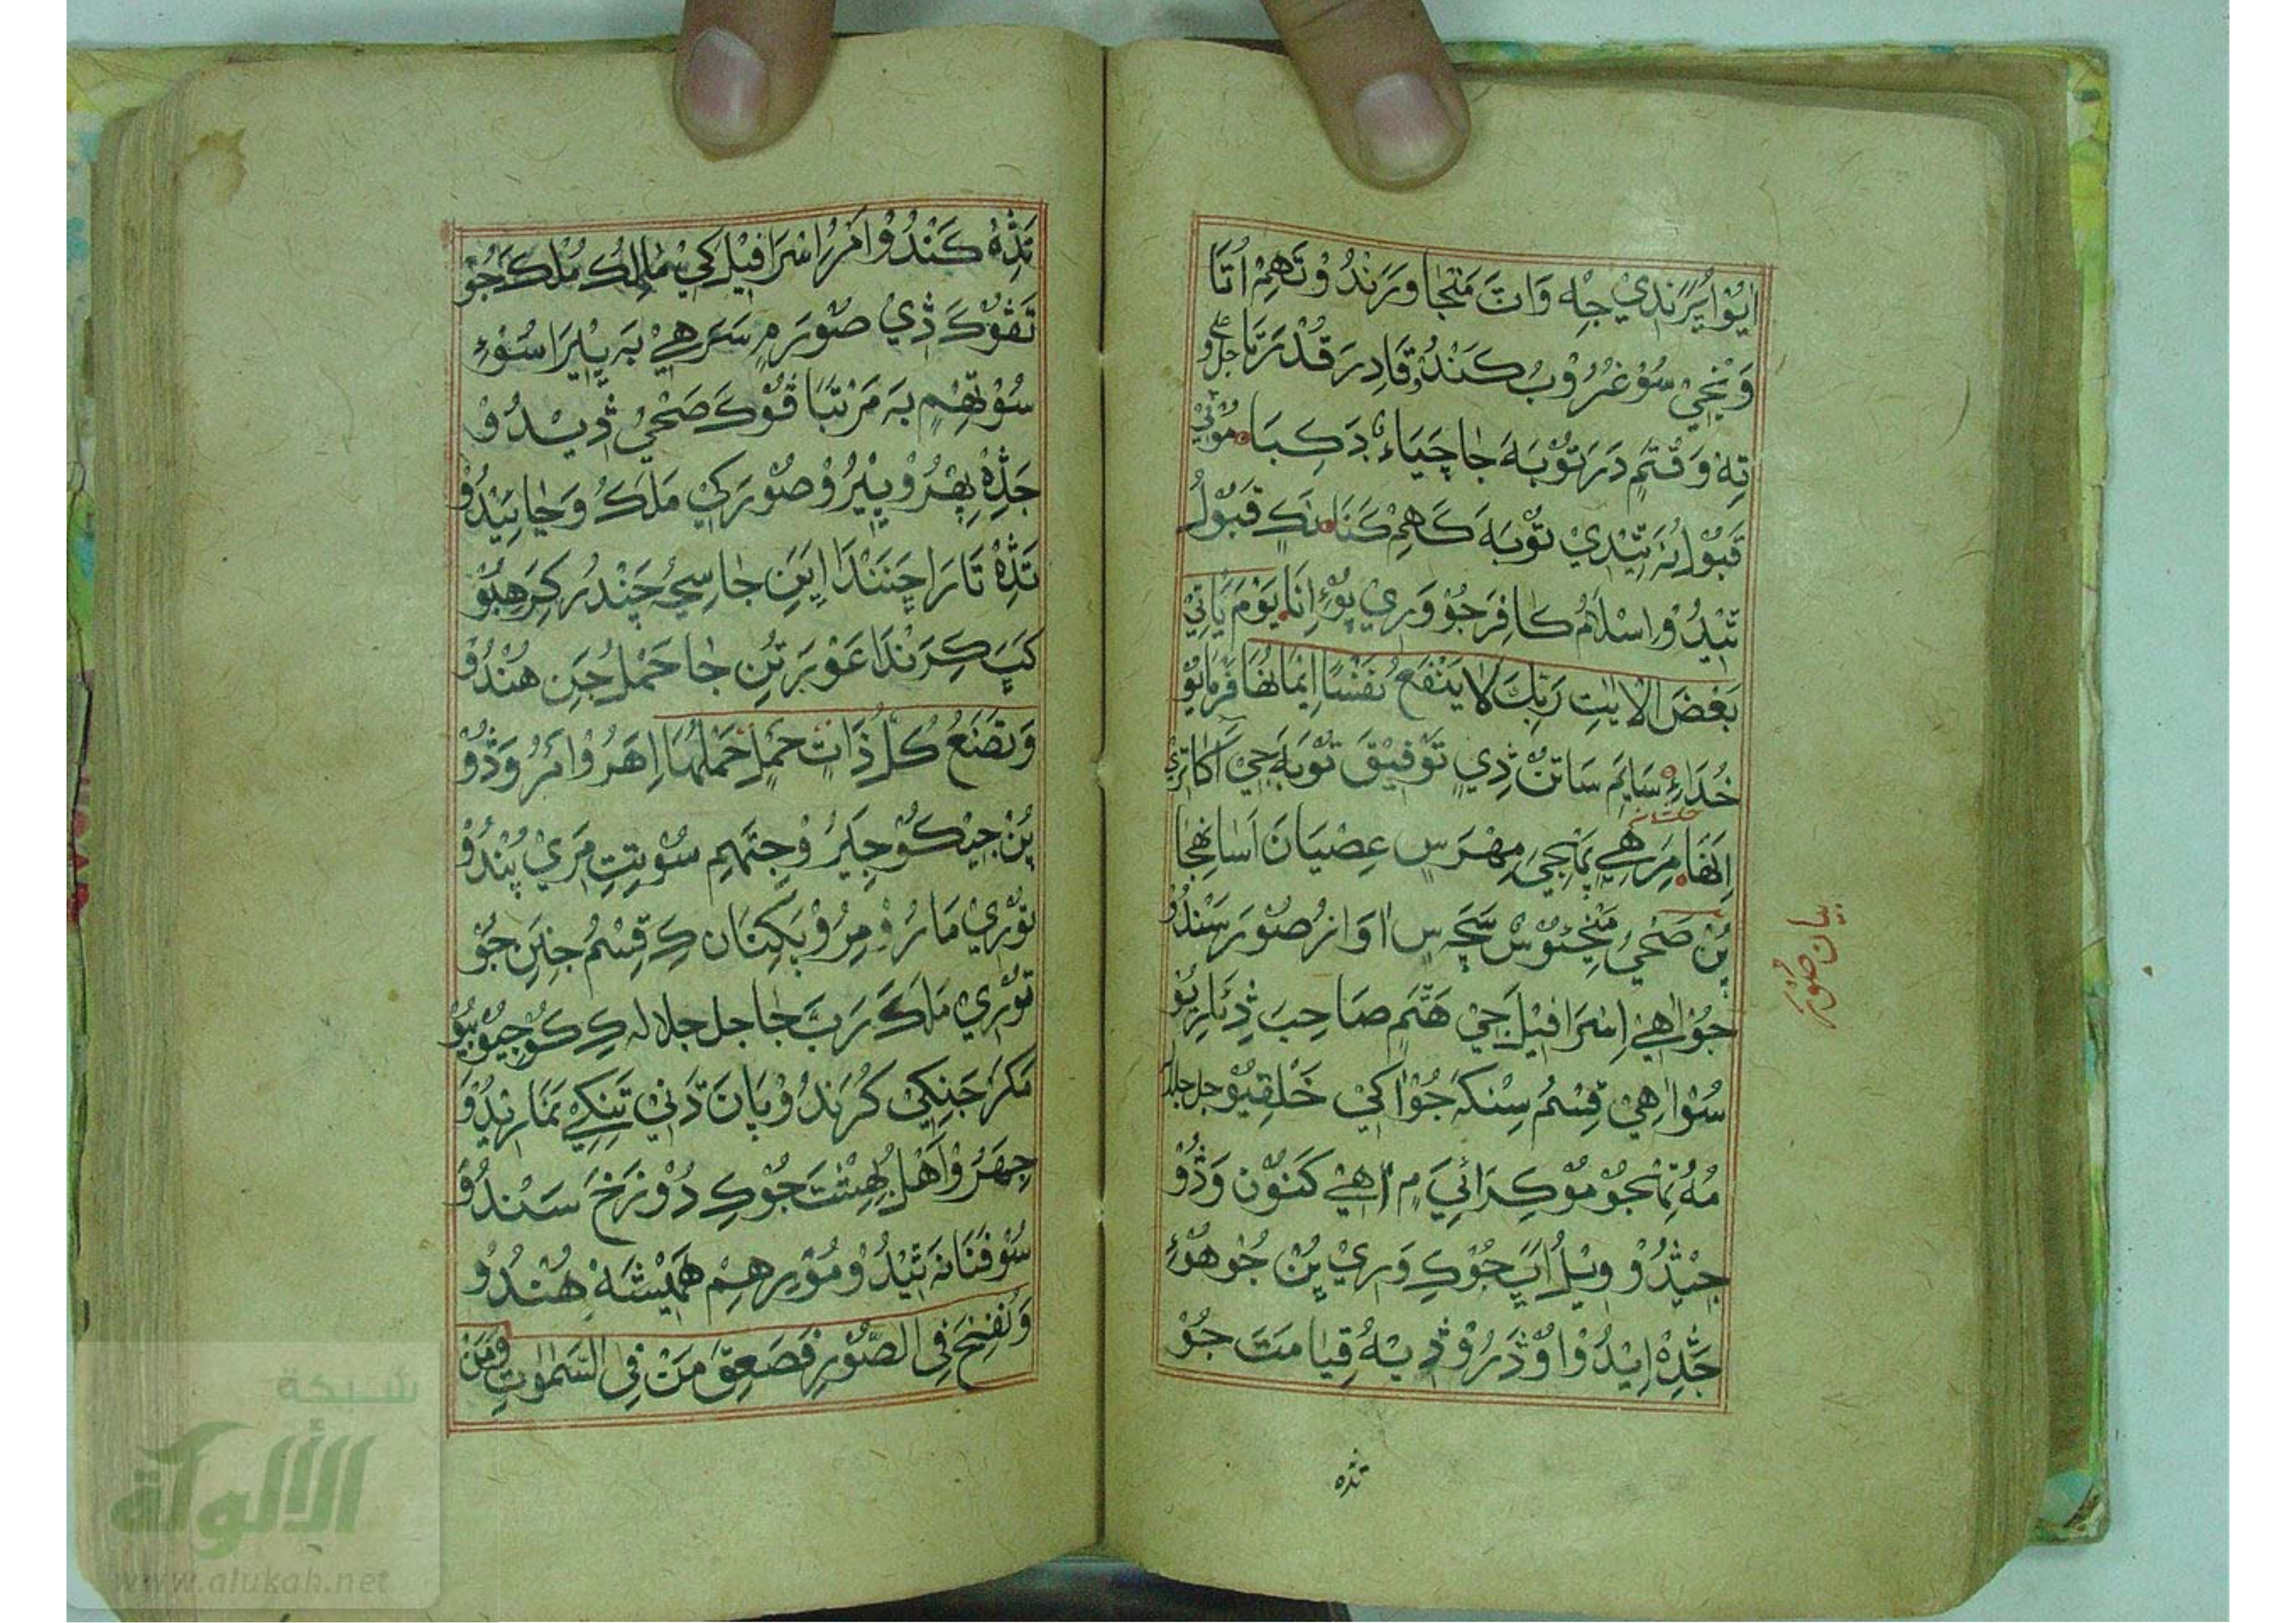 اِيُوْ اُيَرَنْدِيْ جِهِ وَاتَ مَنْجَا وَرَنْدُوْ تَهِمْ اُتَا
وَيْجِيْ سُوْ غُرُوْبُ كَنْدُوْ قَادِرَ قُدْرَتَا جل و علي
تِهْ وَقْتَمِ دَرَ تَوْبَهَ جَا چَيَاءِ دَ كِبَا مُوْٽِيْ
قَبُوْلُ نَہ تِيْدِيْ تَوْبَهَ كَهِمْ كَنَا نَكِ قَبُوْلُ
تِيْدُوْ اِسْلَامُ كَافِرَ جُوْ وَرِيْ پُوْءِ اِنَا يَوْمَ يَأْتِيْ
بَعْضَ الْاٰيٰتِ رَبِّكَ لَا يَنْفَعُ نَفْسًا اِيْمَانُهَا فَرْمَايُوْ
خُدَاءِ سَايَمَ سَاتَنْ ڏِيْ تَوْفِيْقَ تَوْبَهَ جِيْ اَكَاتَرِيْ
اِنَهَا مَرَ هِيْ پَنْجِيَ مِهْرَ سِ عِصْيَانَ اَسَانْهِجَا
پُنْ صَحِيْ مَنْجِيُوْسْ سَچَ سِ اَوَازُ صُوْرَ سَنْدُوْ
جُوْ اٰهِيْ اِسْرَافِيْلَ جِيْ هَتَمِ صَاحِبَ ڏِئَارِيُوْ
سُوْ اٰهِيْ قِسْمُ سِنْكَہ جُوْ اَكِيْ خَلْقِيُوْ جل جلاله
مُهُ تَنْجُوْ مُوْكِرَائِيَ مِ اٰهِيْ كَنَوُنْ وَڏُوْ
جِيْڏُوْ وِيْلُ اَپَ جُوْكِ وَرِيْ پُنْ جُوْ هُوْءِ
جَڏِهْ اِيْدُوْ اوُڏَرُوْ ڏِيْہُ قِيَامَتَ جُوْ
تڏہ
بيان صُوْر
تَڏِهْ كَنْدُوْ اَمْرُ اِسْرَافِيْلَ كِيْ مَالِكُ مُلْكَ جُوْ
تَہ ڦُوْكَ ڏِيْ صُوْرَ مِ سَرَهِيْ بَہ پِيْرَا سُوْءِ
سُوْ تَهِمِ بَہ مَرْتَبَا ڦُوْكَ صَحِيْ ڏِيْدُوْ
جَڏِهْ پِهْرُوْ پِيْرُوْ صُوْرَ كِيْ مَلَكُ وَجَائِيْدُوْ
تَڏِهْ تَارَا چِنَنْدَا اِيَنِ جَا سِجُ چَنْڊُ كِرَهِيُوْ
كَپَ كِرَنْدَا عَوْرَتُنِ جَا حَمْلُ جُنِ هُنْدُوْ
وَتَضَعُ كُلُّ ذَاتِ حَمْلٍ حَمْلَهَا اِهَرُوْ اَمْرُ وَڏُوْ
پُنْ جِيْكُوْ جِيَرُ وْجِتَهِمِ سُوْ تِتِ مَرِيْ پُنْدُوْ
تُوْرِيْ مَارُوْ مِرُوْ پَكِيَنَانِ كِ قِسْمُ جِنَنِ جُوْ
تُوْرِيْ مَلَكَ رَبَّ جَا جل جلاله كِ كُوْ جِيُوْ ٻِيُوْ
مَكَرَ جَنِكِيْ كُرَنْدُوْ پَانَ ڌَنِيْ تَنِكِيْ نَمَارِيْدُوْ
جِهَرُوْ اَهْلُ بِهِشْتَ جُوْكِ دُوْزَخَ سَنْدُوْ
سُوْ فَنَا نَہ تِيْدُوْ مُوْرِهِمْ هَمِيْشَهْ هُنْدُوْ
وَنُفِخَ فِي الصُّوْرِ فَصَعِقَ مَنْ فِي السَّمٰوٰتِ وَمَنْ
شبكة
الألوكة
www.alukah.net